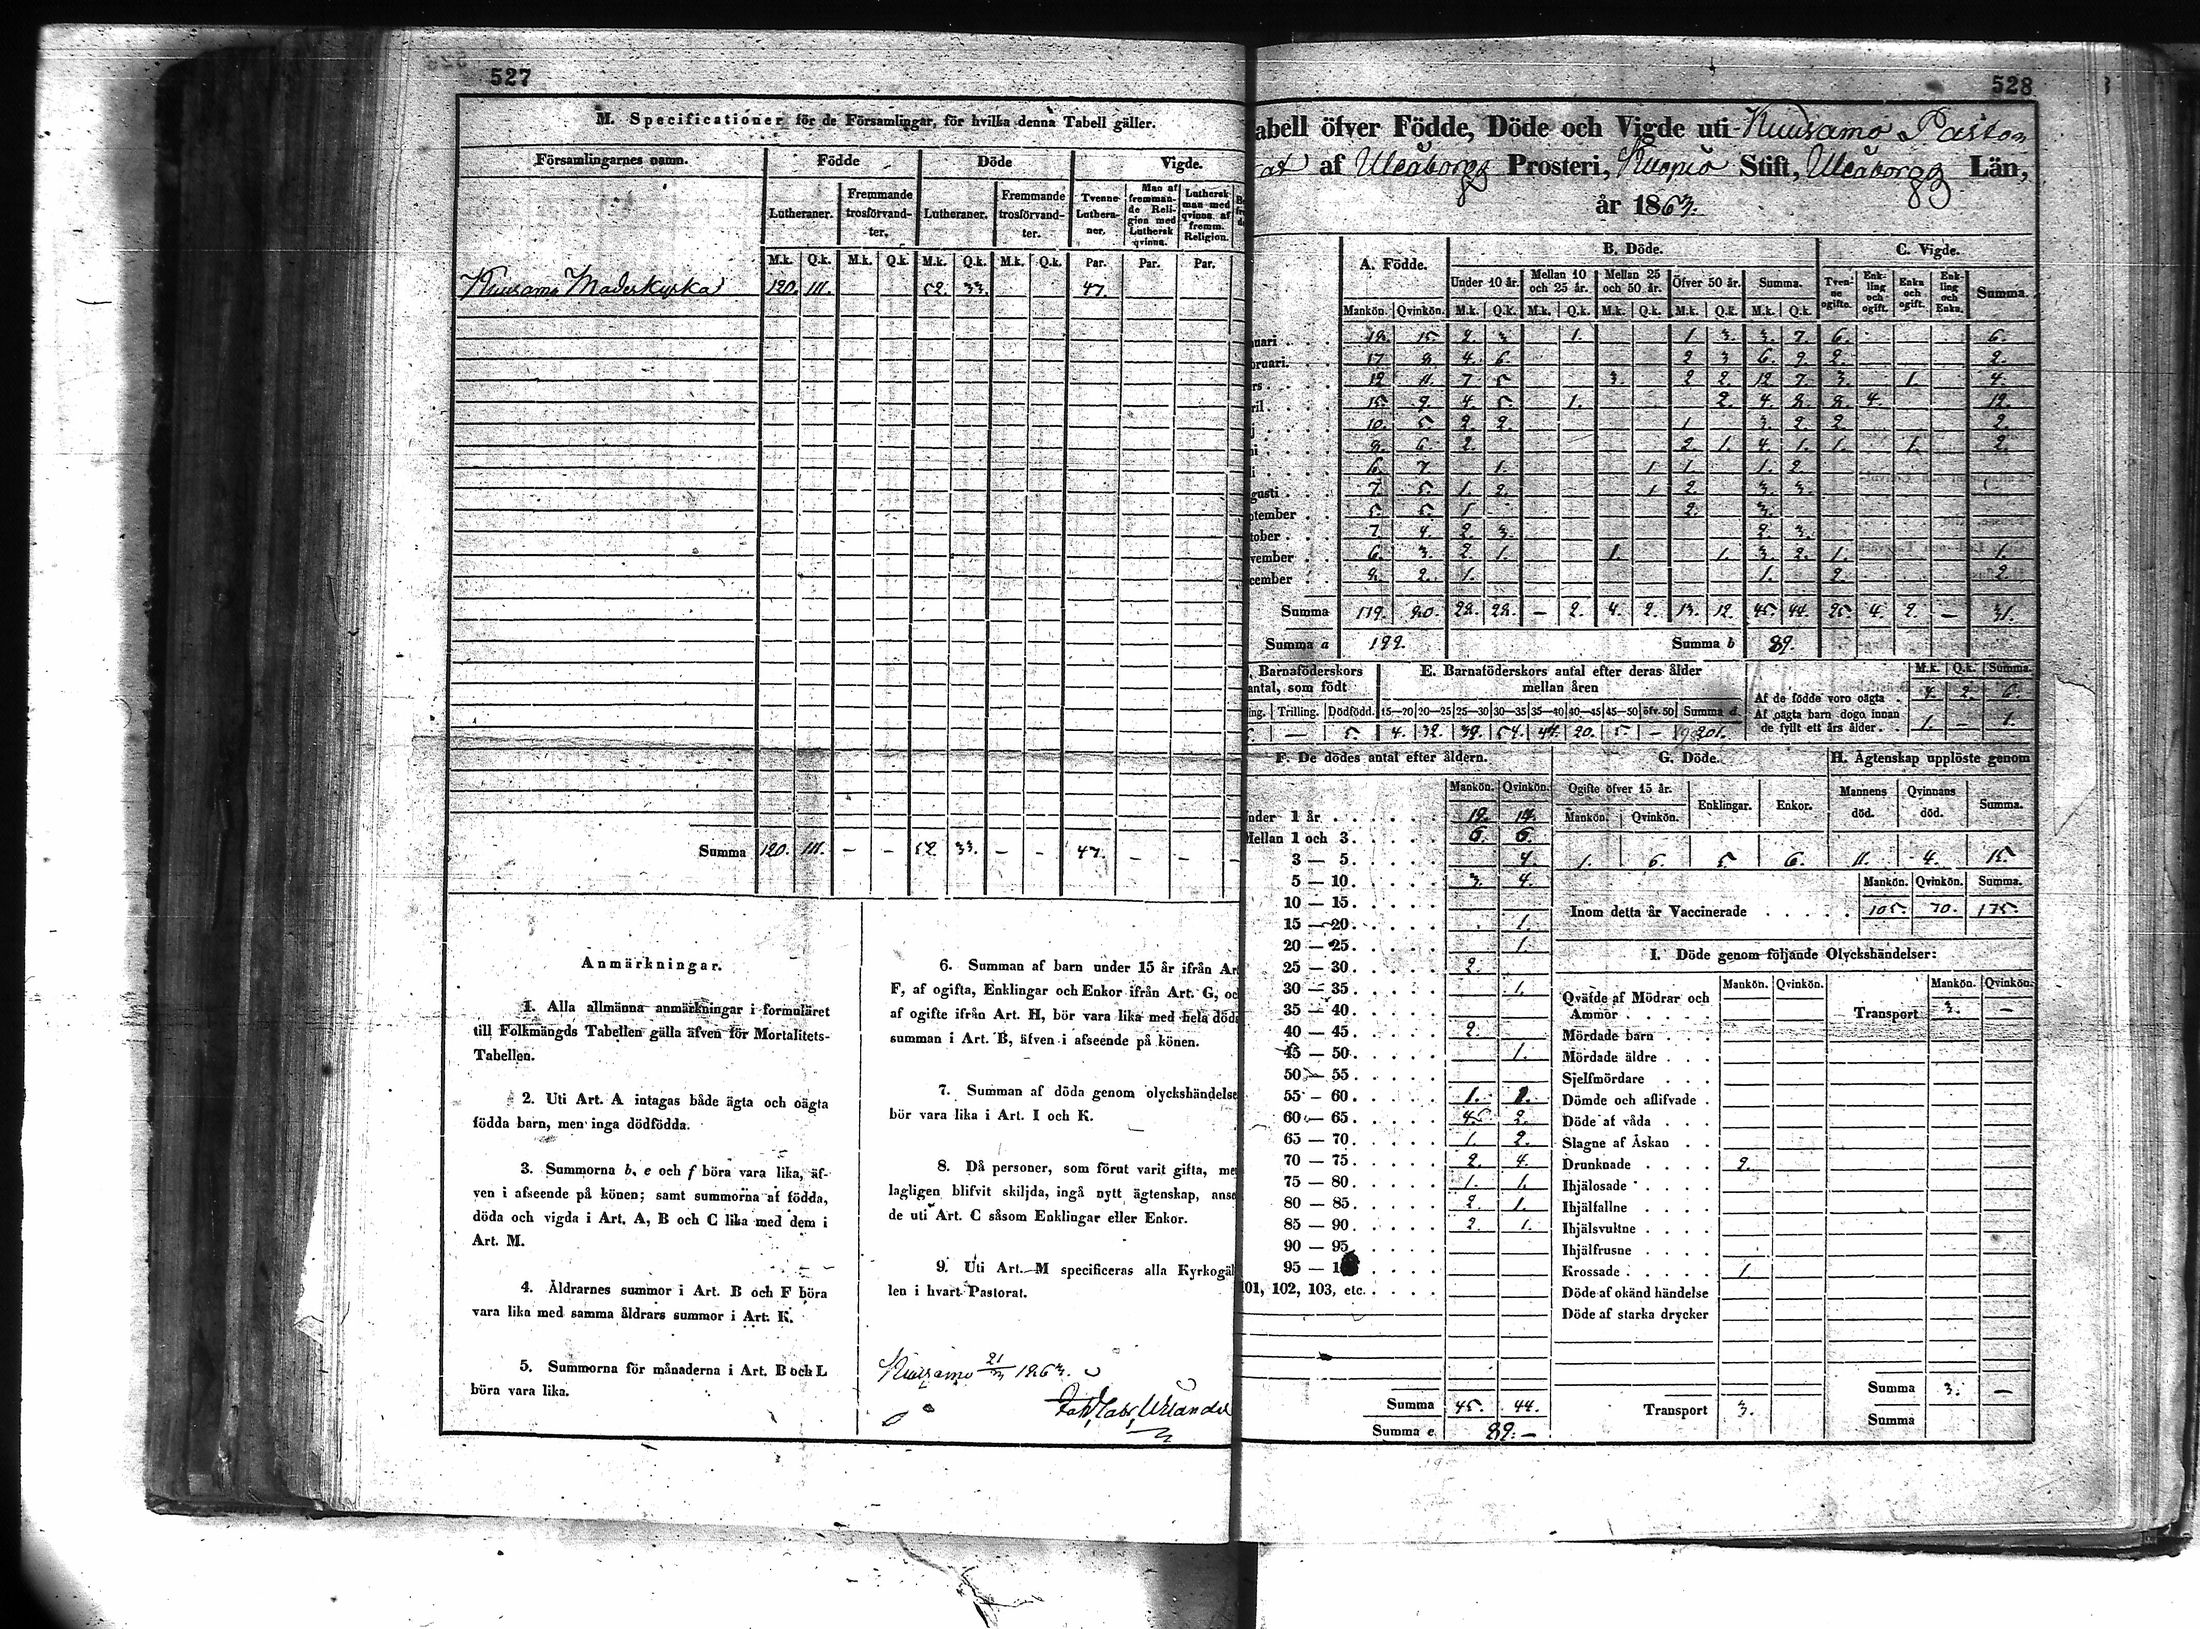 527
M. Specificationer för de Församlingar, för hvilka denna Tabell gäller.
Församlingarnes namn. Födde Döde Vigde.
Lutheraner. Fremmande trosförvandter. Lutheraner. Fremmande trosförvandter. Tvenne Lutheraner. Man af fremmande Religion med Luthersk qvinna. Luthersk man med qvinna af fremm. Religion.
M.k. Q.k. M.k. Q.k. M.k. Q.k. M.k. Q.k. Par. Par. Par.
Kuusamo Moderkyrka 120. 111. 52. 33. 47.
Summa 120. 111. — — 52. 33. — — 47. — —
Anmärkningar.
1. Alla allmänna anmärkningar i formuläret
till Folkmängds Tabellen gälla äfven för Mortalitets-
Tabellen.
2. Uti Art. A intagas både ägta och oägta
födda barn, men inga dödfödda.
3. Summorna b, e och f böra vara lika, äf-
ven i afseende på könen; samt summorna af födda,
döda och vigda i Art. A, B och C lika med dem i
Art. M.
4. Åldrarnes summor i Art. B och F böra
vara lika med samma åldrars summor i Art. K.
5. Summorna för månaderna i Art. B och L
böra vara lika.
6. Summan af barn under 15 år ifrån Ar
F, af ogifta, Enklingar och Enkor ifrån Art. G, oc
af ogifte ifrån Art. H, bör vara lika med hela döds
summan i Art. B, äfven i afseende på könen.
7. Summan af döda genom olyckshändelse
bör vara lika i Art. I och K.
8. Då personer, som förut varit gifta, me
lagligen blifvit skiljda, ingå nytt ägtenskap, anse
de uti Art. C såsom Enklingar eller Enkor.
9. Uti Art. M specificeras alla Kyrkogäl
len i hvart Pastorat.
Kuusamo 21/3 1863.
528
abell öfver Födde, Döde och Vigde uti Kuusamo Pastor
at af Uleåborgs Prosteri, Kuopio Stift, Uleåborgs Län,
år 1863.
A. Födde. B. Döde. C. Vigde.
Under 10 år. Mellan 10 och 25 år. Mellan 25 och 50 år. Öfver 50 år. Summa. Tvenne ogifte. Enkling och ogift. Enka och ogift. Enkling och Enka. Summa.
Mankön. Qvinkön. M.k. Q.k. M.k. Q.k. M.k. Q.k. M.k. Q.k. M.k. Q.k.
nuari 18. 15 2. 3. 1. 1 3. 3. 7. 6. 6.
bruari. 17 8 4. 6. 2 3 6. 9 2. 2.
rs 12 11. 7 5 3. 2 2. 12 7. 3. 1. 4.
ril 15 9 4. 5. 1. 2. 4. 8. 8. 4. 12.
10. 5 2. 2. 1 3. 2 2 2.
ni 8. 6. 2. 2. 1. 4. 1. 1. 1. 2.
li 6. 7. 1. 1 1. 1. 2.
gusti 7. 5. 1. 2. 1 2. 3. 3.
ptember 5. 5 1. 2. 3.
tober 7. 4. 2. 3. 2. 3.
vember 6. 3. 2. 1. 1. 1. 3. 2. 1. 1.
cember 8. 2. 1. 1. 2. 2.
Summa 119. 80. 28. 28. — 2. 4. 2. 13. 12. 45. 44. 25. 4. 2. — 31.
Summa a 199. Summa b 89.
Barnaföderskors antal, som födt E. Barnaföderskors antal efter deras ålder mellan åren M.k. Q.k. Summa.
Af de födde voro oägta 4. 2. 6.
Af oägta barn dogo innan de fyllt ett års ålder. 1. — 1.
ing. Trilling. Dödfödd. 15—20 20—25 25—30 30—35 35—40 40—45 45—50 öfv. 50 Summa d.
— 5 4. 32. 39. 54. 47. 20. 5 — 201.
F. De dödes antal efter åldern. G. Döde. H. Ägtenskap upplöste genom
Mankön. Qvinkön. Ogifte öfver 15 år. Enklingar. Enkor. Mannens död. Qvinnans död. Summa.
Mankön. Qvinkön.
1. 6. 5 6. 11. 4. 15.
nder 1 år 19. 14.
Mellan 1 och 3. 6. 6.
3 — 5. 4
5 — 10. 3. 4.
10 — 15.
15 — 20. 1.
20 — 25. 1.
25 — 30. 2.
30 — 35. 1.
35 — 40.
40 — 45. 2.
45 — 50. 1.
50 — 55.
55 — 60. 1. 2.
60 — 65. 4. 2.
65 — 70. 1. 2.
70 — 75. 2. 4.
75 — 80. 1. 1.
80 — 85. 2. 1.
85 — 90. 2. 1.
90 — 95
95 — 1
101, 102, 103, etc.
Summa 45. 44.
Summa e. 89. —
Mankön. Qvinkön. Summa.
Inom detta år Vaccinerade 105. 70. 175.
I. Döde genom följande Olyckshändelser:
Mankön. Qvinkön. Mankön. Qvinkön.
Qväfde af Mödrar och Ammor Transport 3. —
Mördade barn
Mördade äldre
Sjelfmördare
Dömde och aflifvade
Döde af våda
Slagne af Åskan
Drunknade 2.
Ihjälosade
Ihjälfallne
Ihjälsvultne
Ihjälfrusne
Krossade 1
Döde af okänd händelse
Döde af starka drycker
Summa 3. —
Transport 3.
Summa